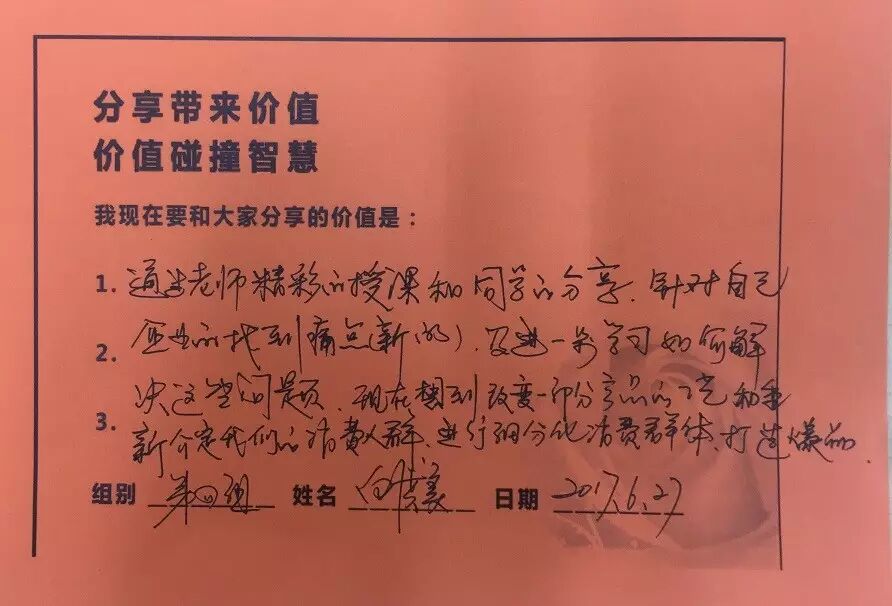 分享带来价值
价值碰撞智慧
我现在要和大家分享的价值是：
1. 通过老师精彩的授课和同学的分享. 针对自己
2. 企业的找到痛点(新的). 及进一步学习如何解
决这些问题. 现在想到改变一部分产品的工艺和重
3. 新介定我们的消费人群. 进行细分化消费群体. 打造爆品.
组别 第四组 姓名 白 日期 2017.6.27